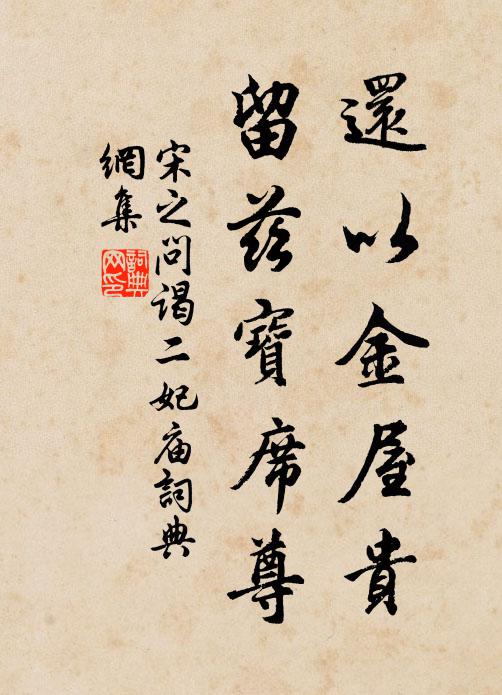 還以金屋貴
留茲寶席尊
宋之问謁二妃庙詞典
網集
詞典
网印